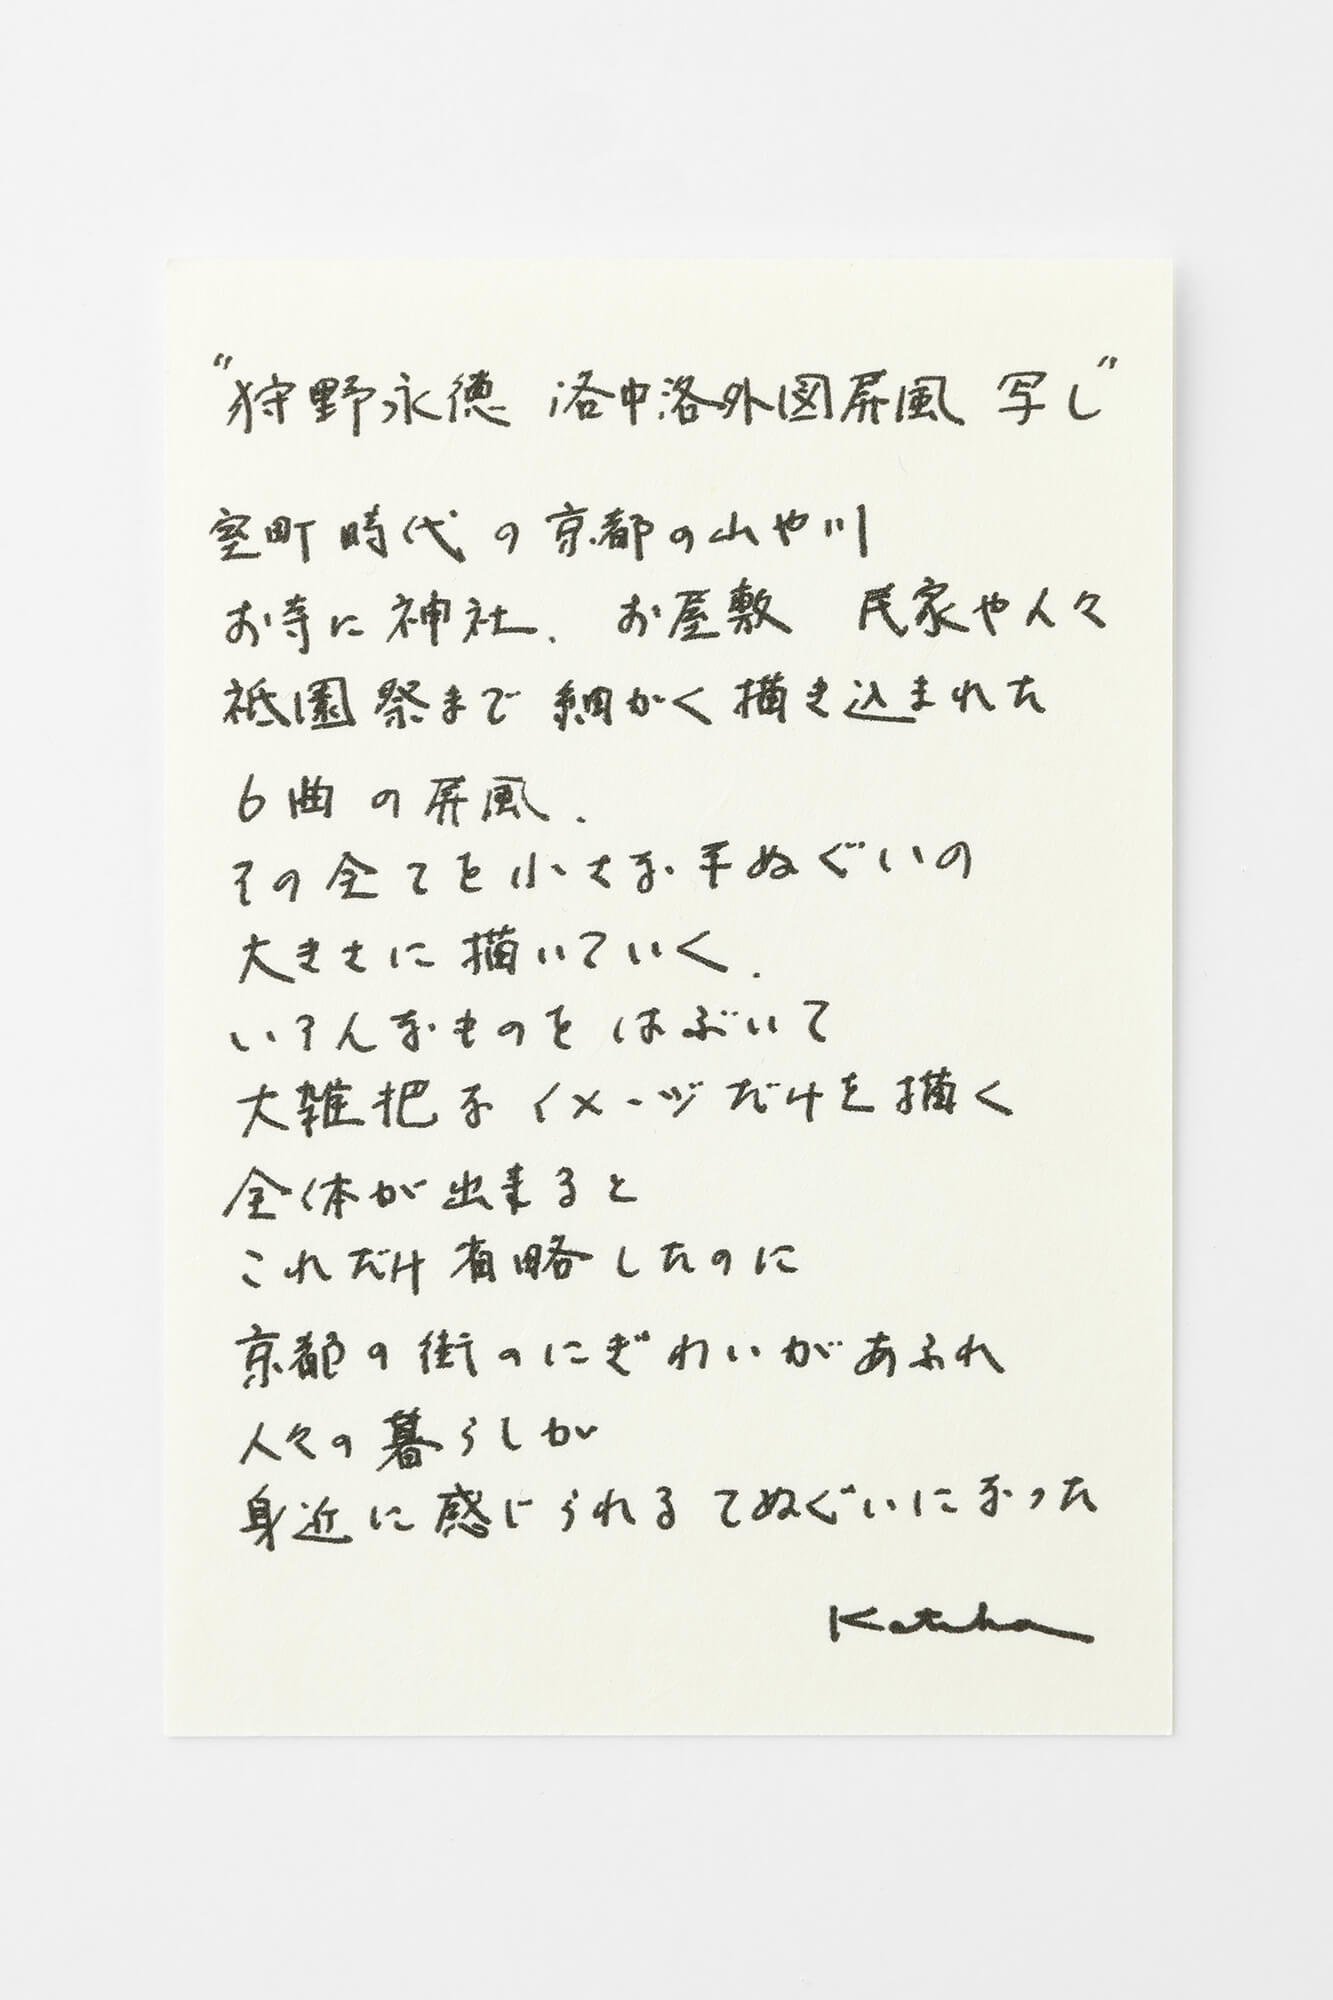 "狩野永徳 洛中洛外図屏風 写し"
室町時代の京都の山や川
お寺に神社、お屋敷 民家や人々
祇園祭まで細かく描き込まれた
6曲の屏風、
その全てを小さな手ぬぐいの
大きさに描いていく、
いろんなものをはぶいて
大雑把なイメージだけを描く
全体が出来ると
これだけ省略したのに
京都の街のにぎわいがあふれ
人々の暮らしが
身近に感じられるてぬぐいになった